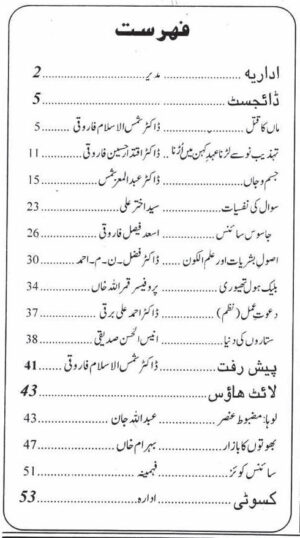 فہرست
اداریہ ........ مدیر ........ 2
ڈائجسٹ ........ 5
ماں کا قتل ........ ڈاکٹر شمس الاسلام فاروقی ........ 5
تہذیب نو سے لڑنا عہدِ کہن میں اُڑنا .. ڈاکٹر اقتدار حسین فاروقی ........ 11
جسم و جاں ........ ڈاکٹر عبدالمعز شمس ........ 15
سوال کی نفسیات ........ سید اختر علی ........ 23
جاسوس سائنس ........ اسعد فیصل فاروقی ........ 26
اصولِ بشریات اور علم الکون ........ ڈاکٹر فضل ۔ن ۔م ۔احمد ........ 30
بلیک ہول تھیوری ........ پروفیسر قمر اللہ خاں ........ 34
دعوتِ عمل (نظم) ........ ڈاکٹر احمد علی برقی ........ 37
ستاروں کی دنیا ........ انیس الحسن صدیقی ........ 38
پیش رفت ........ ڈاکٹر شمس الاسلام فاروقی ........ 41
لائٹ ھاؤس ........ 43
لوہا: مضبوط عنصر ........ عبداللہ جان ........ 43
بھوتوں کا بازار ........ بہرام خاں ........ 47
سائنس کوئز ........ فہمینہ ........ 51
کسوٹی ........ ادارہ ........ 53